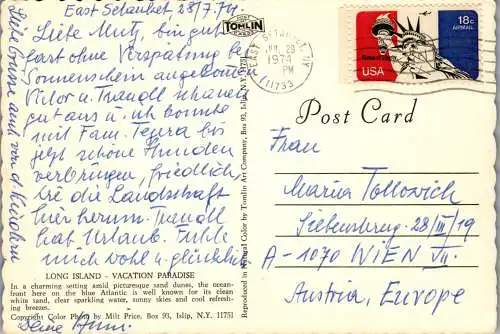 East Setauket 28/7.74.
Liebe Mutz, bin gut
fast ohne Verspätung bei
Sonnenschein angekommen
Victor u. Traudl schauen
gut aus u. ich konnte
mit Fam. bis
jetzt schöne Stunden
verbringen, friedlich
wie die Landschaft
hier herum. Traudl
hat Urlaub. Fühle
mich wohl u. glücklich
LONG ISLAND - VACATION PARADISE
In a charming setting amid picturesque sand dunes, the ocean-
front here on the blue Atlantic is well known for its clean
white sand, clear sparkling water, sunny skies and cool refresh-
ing breezes.
Copyright Color Photo by Milt Price, Box 93, Islip, N.Y. 11751
Deine
Liebe Grüsse auch von d. Kindern
TOMLIN
Reproduced in Natural Color by Tomlin Art Company, Box 93, Islip, N.Y. 11751
EAST SETAUKET, NY
JUL 29
PM
1974
11733
18c
AIRMAIL
USA
Post Card
Frau
Maria
Siebensterng. 28/III/19
A-1070 WIEN VII.
Austria, Europe